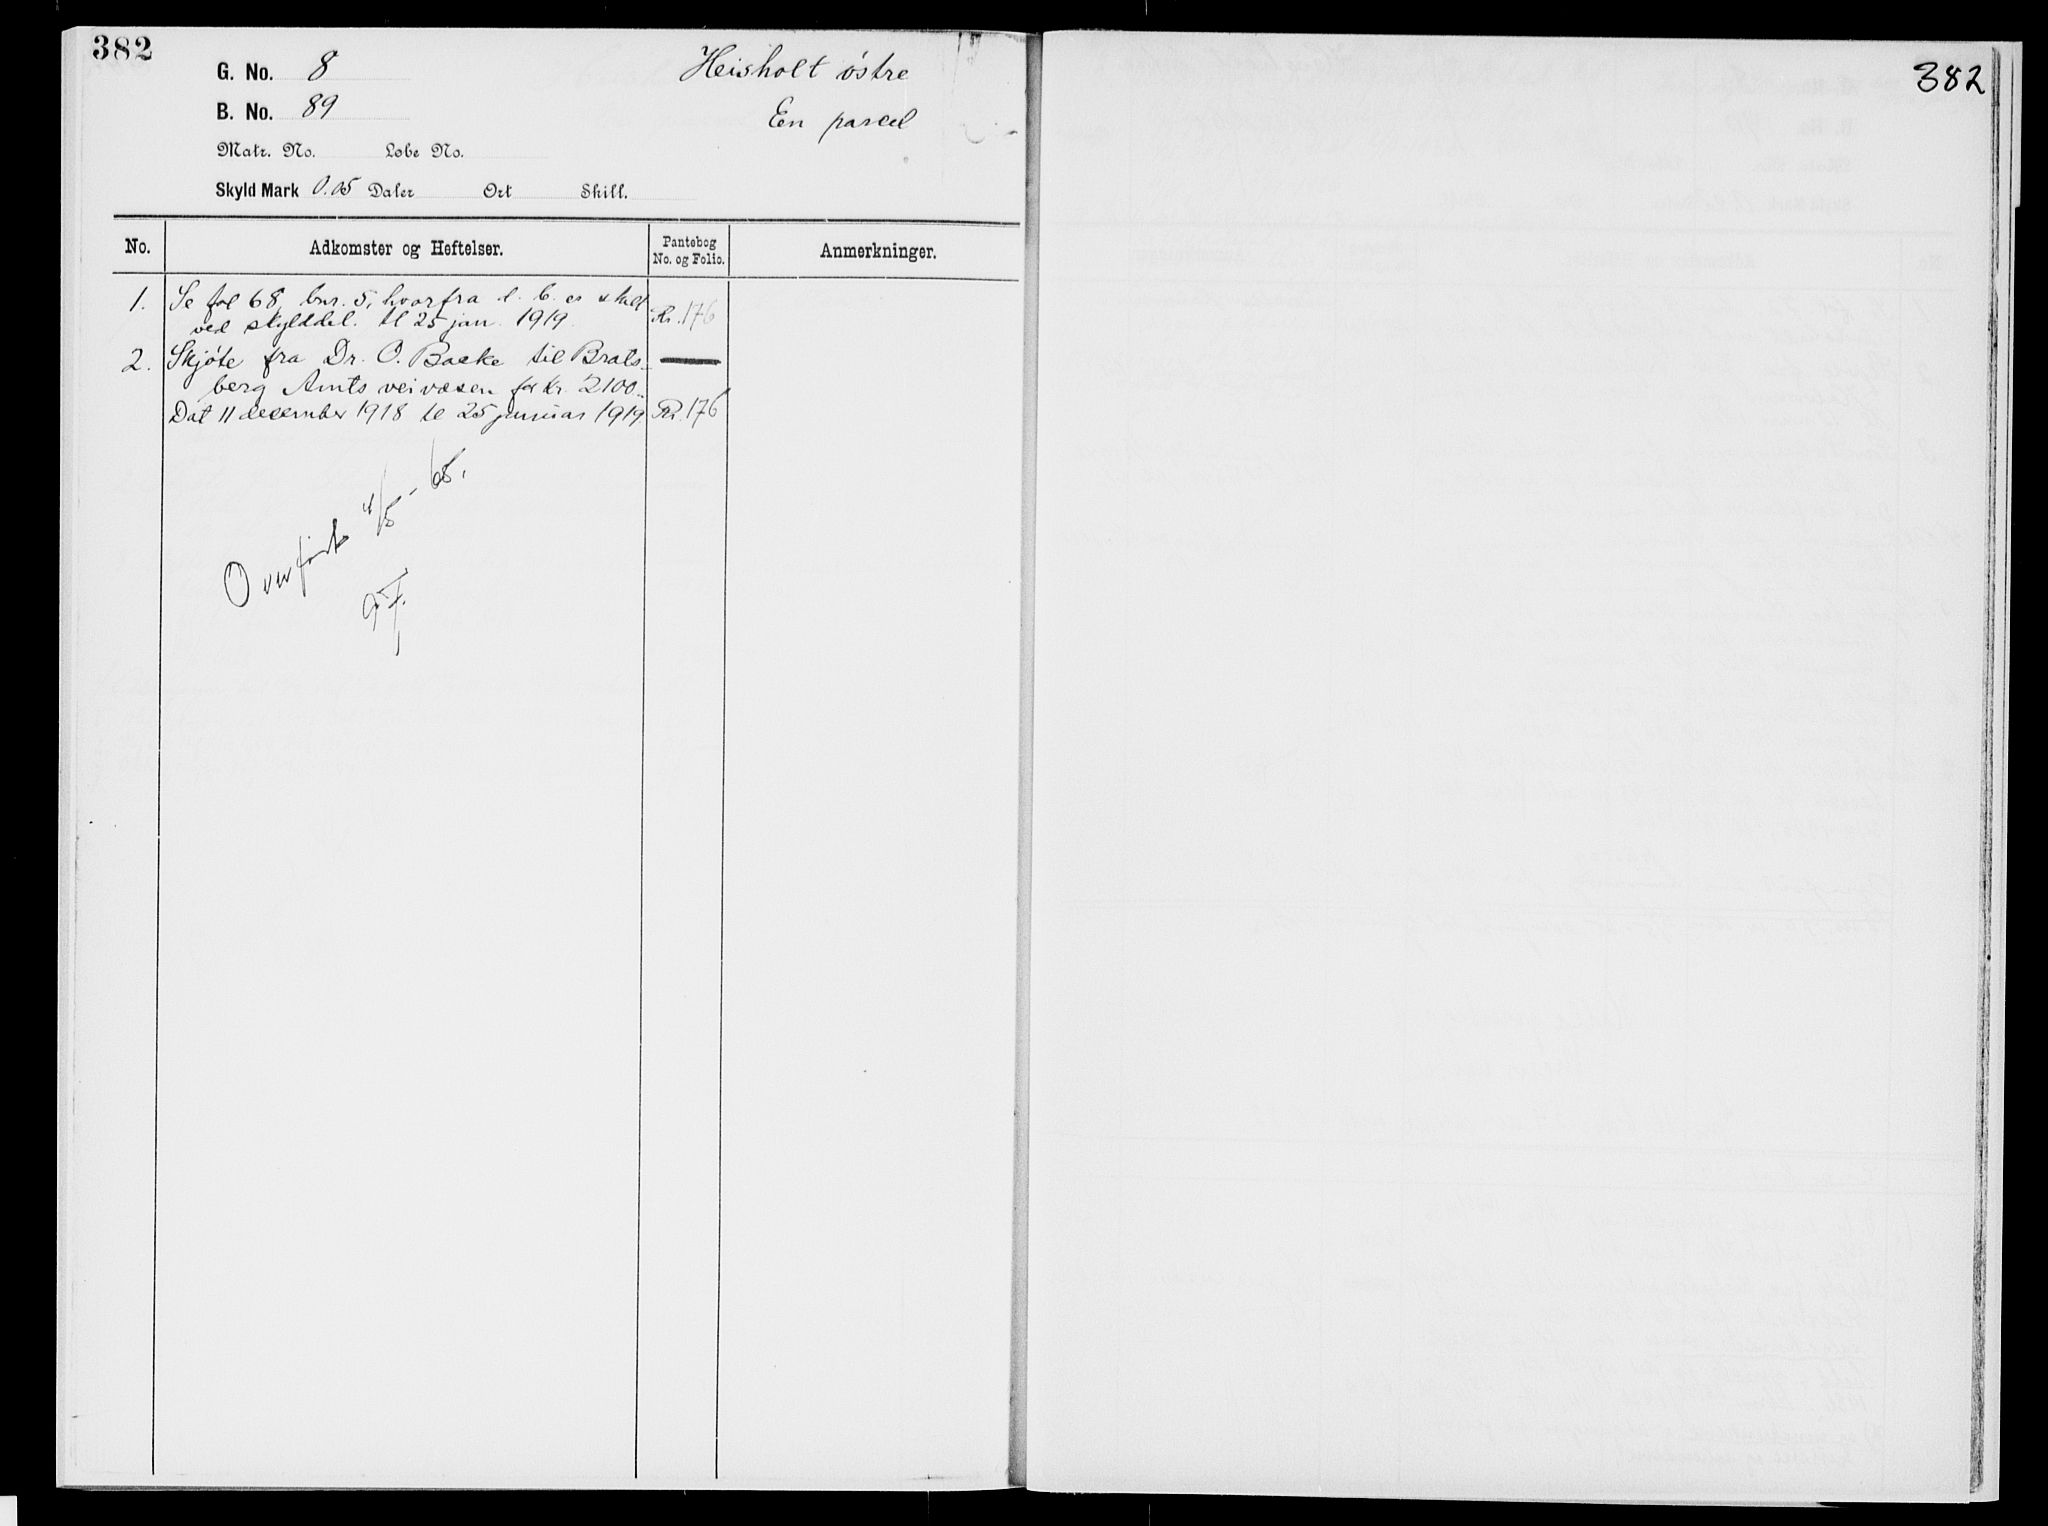 382
G. No. 8
Heisholt østre
B. No. 89
En parcel
Matr. No. Løbe No.
Skyld Mark 0.05 Daler Ort Skill.
No. Adkomster og Heftelser. Pantebog No. og Folio. Anmerkninger.
1. Se fol 68, bnr. 5, hvorfra d. b. er skilt
ved skylddel. tl 25 jan. 1919. 176
2. Skjøte fra Dr. O. Backe til Brats-
berg Amts veivæsen for kr. 2100..
Dat 11 december 1918 tl 25 januar 1919. 176
Overført 4/5 - 68.
382